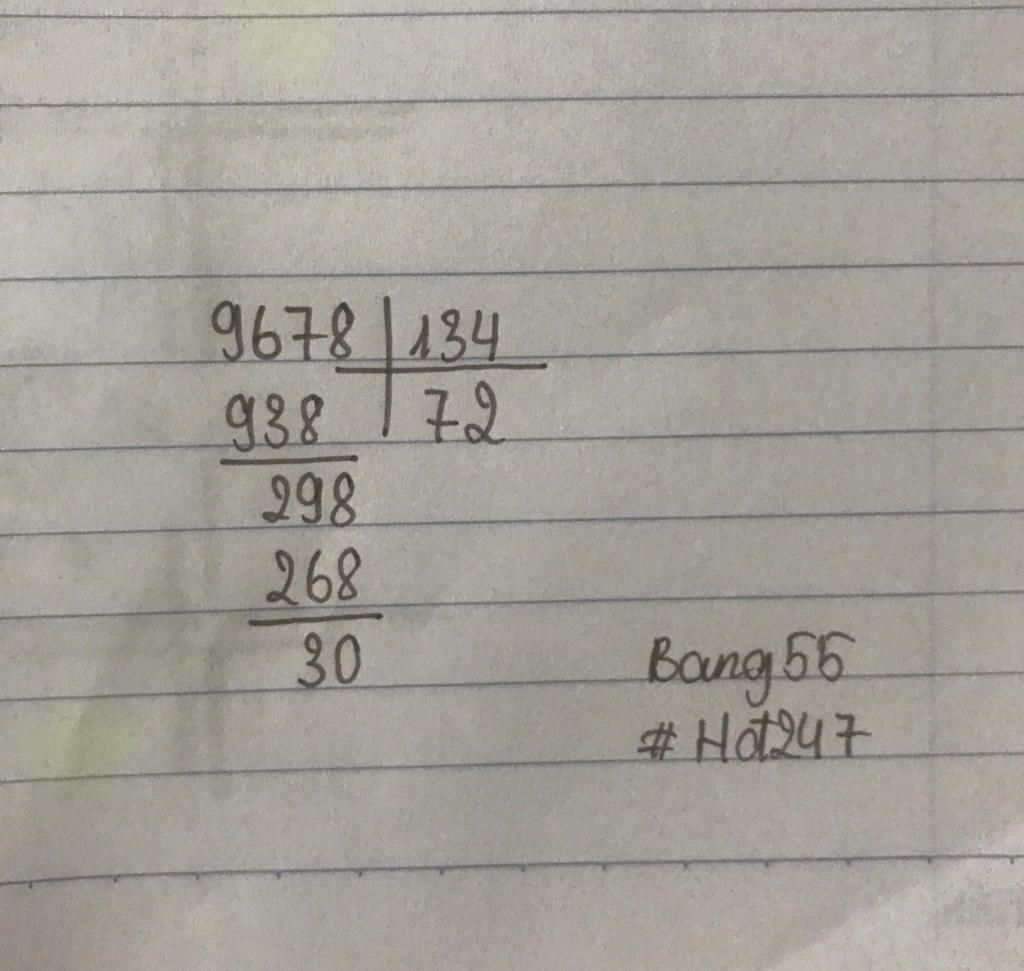 9678 134
938 72
298
268
30
Bang55
#Hot247